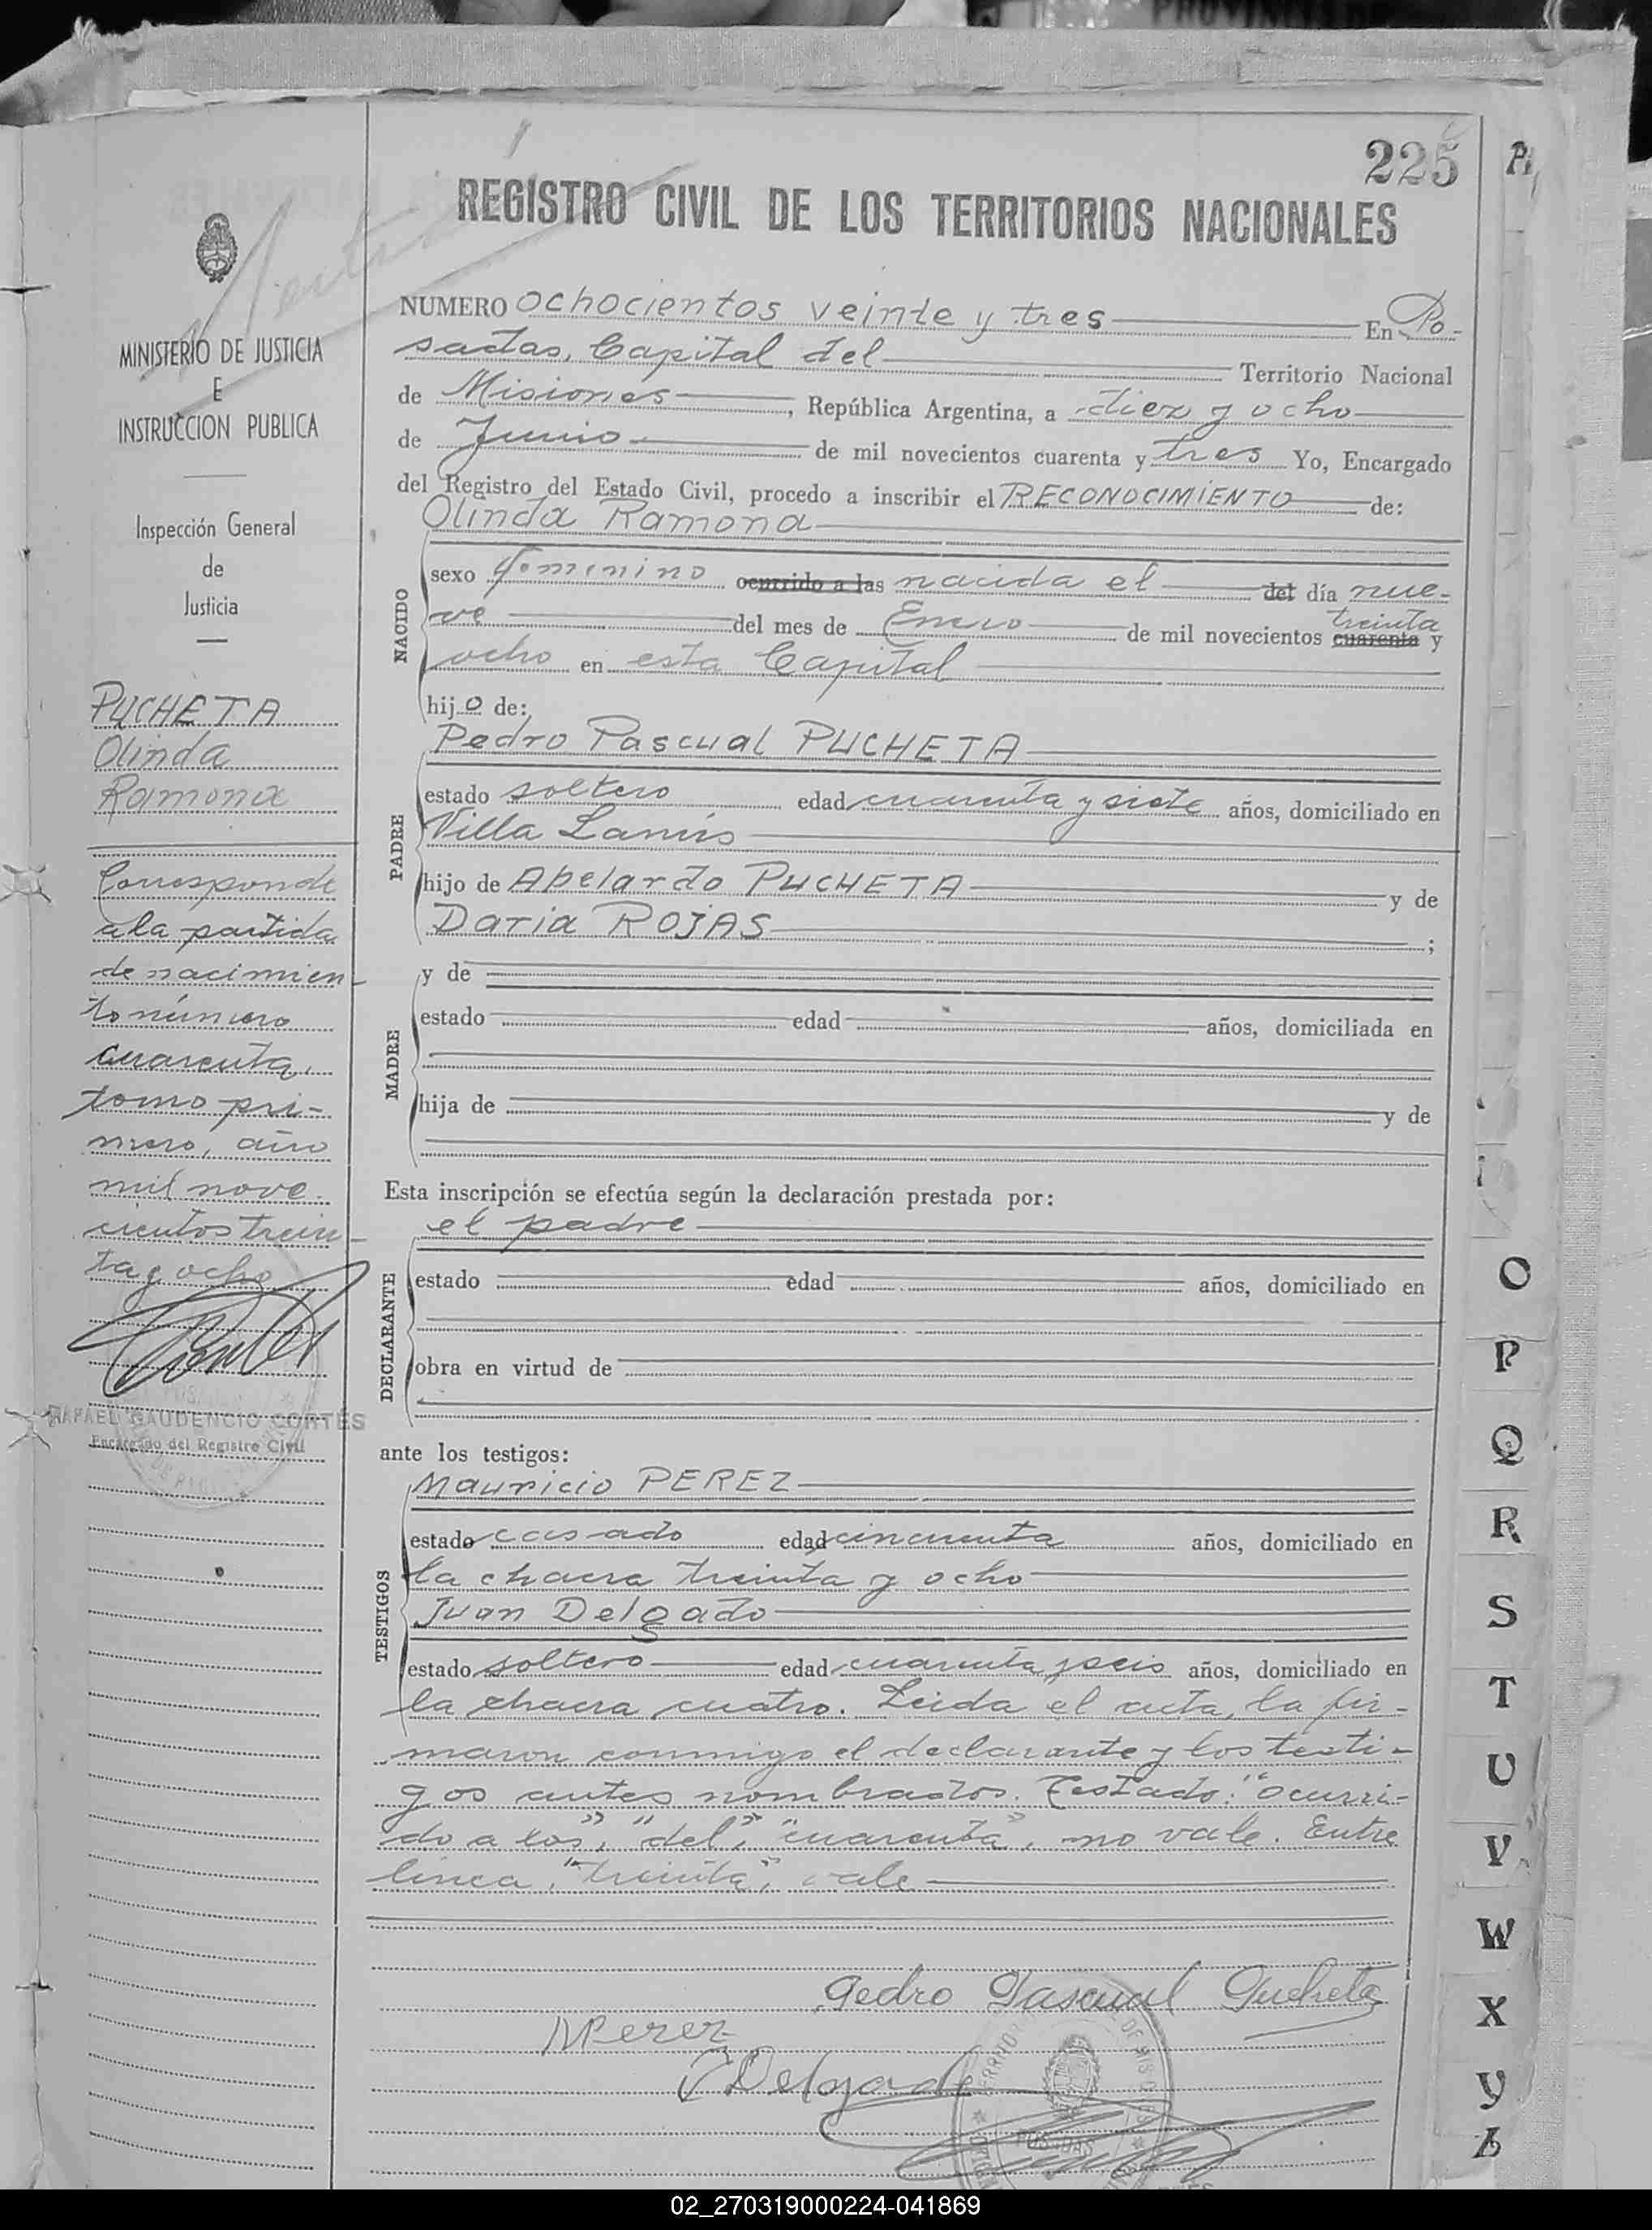 225
REGISTRO CIVIL DE LOS TERRITORIOS NACIONALES
MINISTERIO DE JUSTICIA
E
INSTRUCCION PUBLICA
Inspección General
de
Justicia
PUCHETA
Olinda
Ramona
Corresponde
a la partida
de nacimien-
to número
cuarenta,
tomo pri-
mero, año
mil nove-
cientos trein-
ta y ocho
RAFAEL GAUDENCIO CORTÉS
Encargado del Registro Civil
NUMERO ochocientos veinte y tres En Po-
sadas, Capital del Territorio Nacional
de Misiones, República Argentina, a diez y ocho
de Junio de mil novecientos cuarenta y tres Yo, Encargado
del Registro del Estado Civil, procedo a inscribir el RECONOCIMIENTO de:
Olinda Ramona
NACIDO
sexo femenino ocurrido a las nacida el del día nue-
ve del mes de Enero de mil novecientos cuarenta treinta y
ocho en esta Capital
hijo de:
Pedro Pascual PUCHETA
PADRE
estado soltero edad cuarenta y siete años, domiciliado en
Villa Lanús
hijo de Abelardo PUCHETA y de
Daria ROJAS ;
MADRE
y de
estado edad años, domiciliada en
hija de y de
Esta inscripción se efectúa según la declaración prestada por:
el padre
DECLARANTE
estado edad años, domiciliado en
obra en virtud de
ante los testigos:
Mauricio PEREZ
TESTIGOS
estado casado edad cincuenta años, domiciliado en
la chacra treinta y ocho
Juan Delgado
estado soltero edad cuarenta y seis años, domiciliado en
la chacra cuatro. Leida el acta, la fir-
maron conmigo el declarante y los testi-
gos antes nombrados. Testado: "ocurri-
do a las", "del", "cuarenta", no vale. Entre
linea, "treinta", vale
Pedro Pascual Pucheta
MPerez
J Delgado
POSADAS
O
P
Q
R
S
T
U
V
W
X
Y
Z
02_270319000224-041869